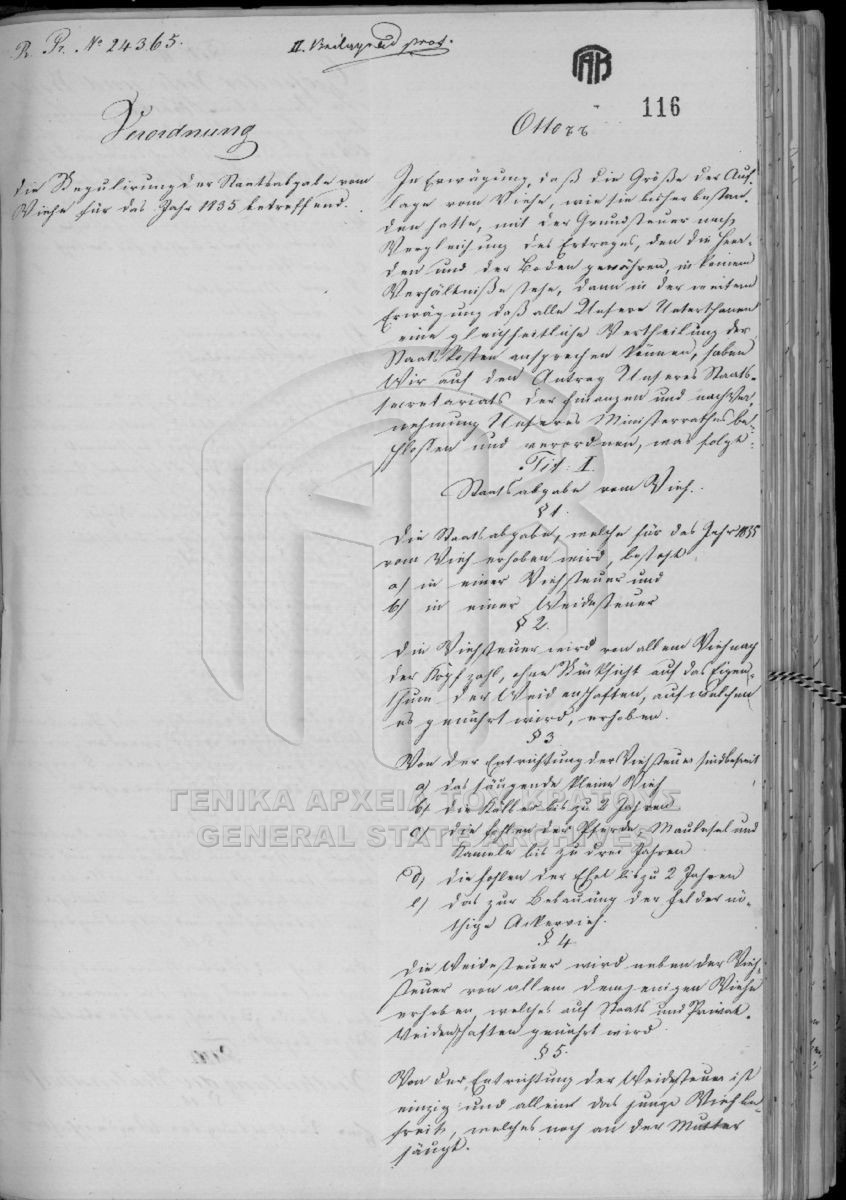 R. Pr. No 24365.
II. Beilage ad prot.
116
Verordnung
Otto
die Regulirung der Staatsabgabe vom
Viehe für das Jahr 1835 betreffend.
In Erwägung, daß die Größe der Auf-
lage vom Viehe, wie sie bisher bestan-
den hatte, mit der Grundsteuer nach
Vergleichung des Ertrages, den die Heer-
den und der Boden gewähren, in keinem
Verhältniße stehe, dann in der weitern
Erwägung daß alle Unsere Unterthanen
eine gleichheitliche Vertheilung der
Staatskosten ansprechen können, haben
Wir auf den Antrag Unseres Staats-
secretariats der Finanzen und nach Ver-
nehmung Unseres Ministerrathes be-
schlossen und verordnen, was folgt:
Tit: I.
Staatsabgabe vom Vieh.
§ 1.
Die Staatsabgabe, welche für das Jahr 1835
vom Vieh erhoben wird, besteht
a) in einer Viehsteuer und
b) in einer Weidesteuer
§ 2.
Die Viehsteuer wird von allem Vieh nach
der Kopfzahl, ohne Rücksicht auf das Eigen-
thum der Weidenschaften, auf welchen
es genährt wird, erhoben.
§ 3
Von der Entrichtung der Viehsteuer sind befreit
a) das säugende kleine Vieh
b) die Kälber bis zu 2 Jahren
c) die Fohlen der Pferde, Maulesel und
Kameele bis zu drei Jahren
d) die Fohlen der Esel bis zu 2 Jahren
e) das zur Bebauung der Felder nö-
thige Ackervieh.
§ 4
Die Weidesteuer wird neben der Vieh-
steuer von allem demjenigen Viehe
erhoben, welches auf Staats und Privat-
Weidenschaften genährt wird.
§ 5.
Von der Entrichtung der Weidesteuer ist
einzig und allein das junge Vieh be-
freit, welches noch an der Mutter
säugt.
ΓΕΝΙΚΑ ΑΡΧΕΙΑ ΤΟΥ ΚΡΑΤΟΥΣ
GENERAL STATE ARCHIVES